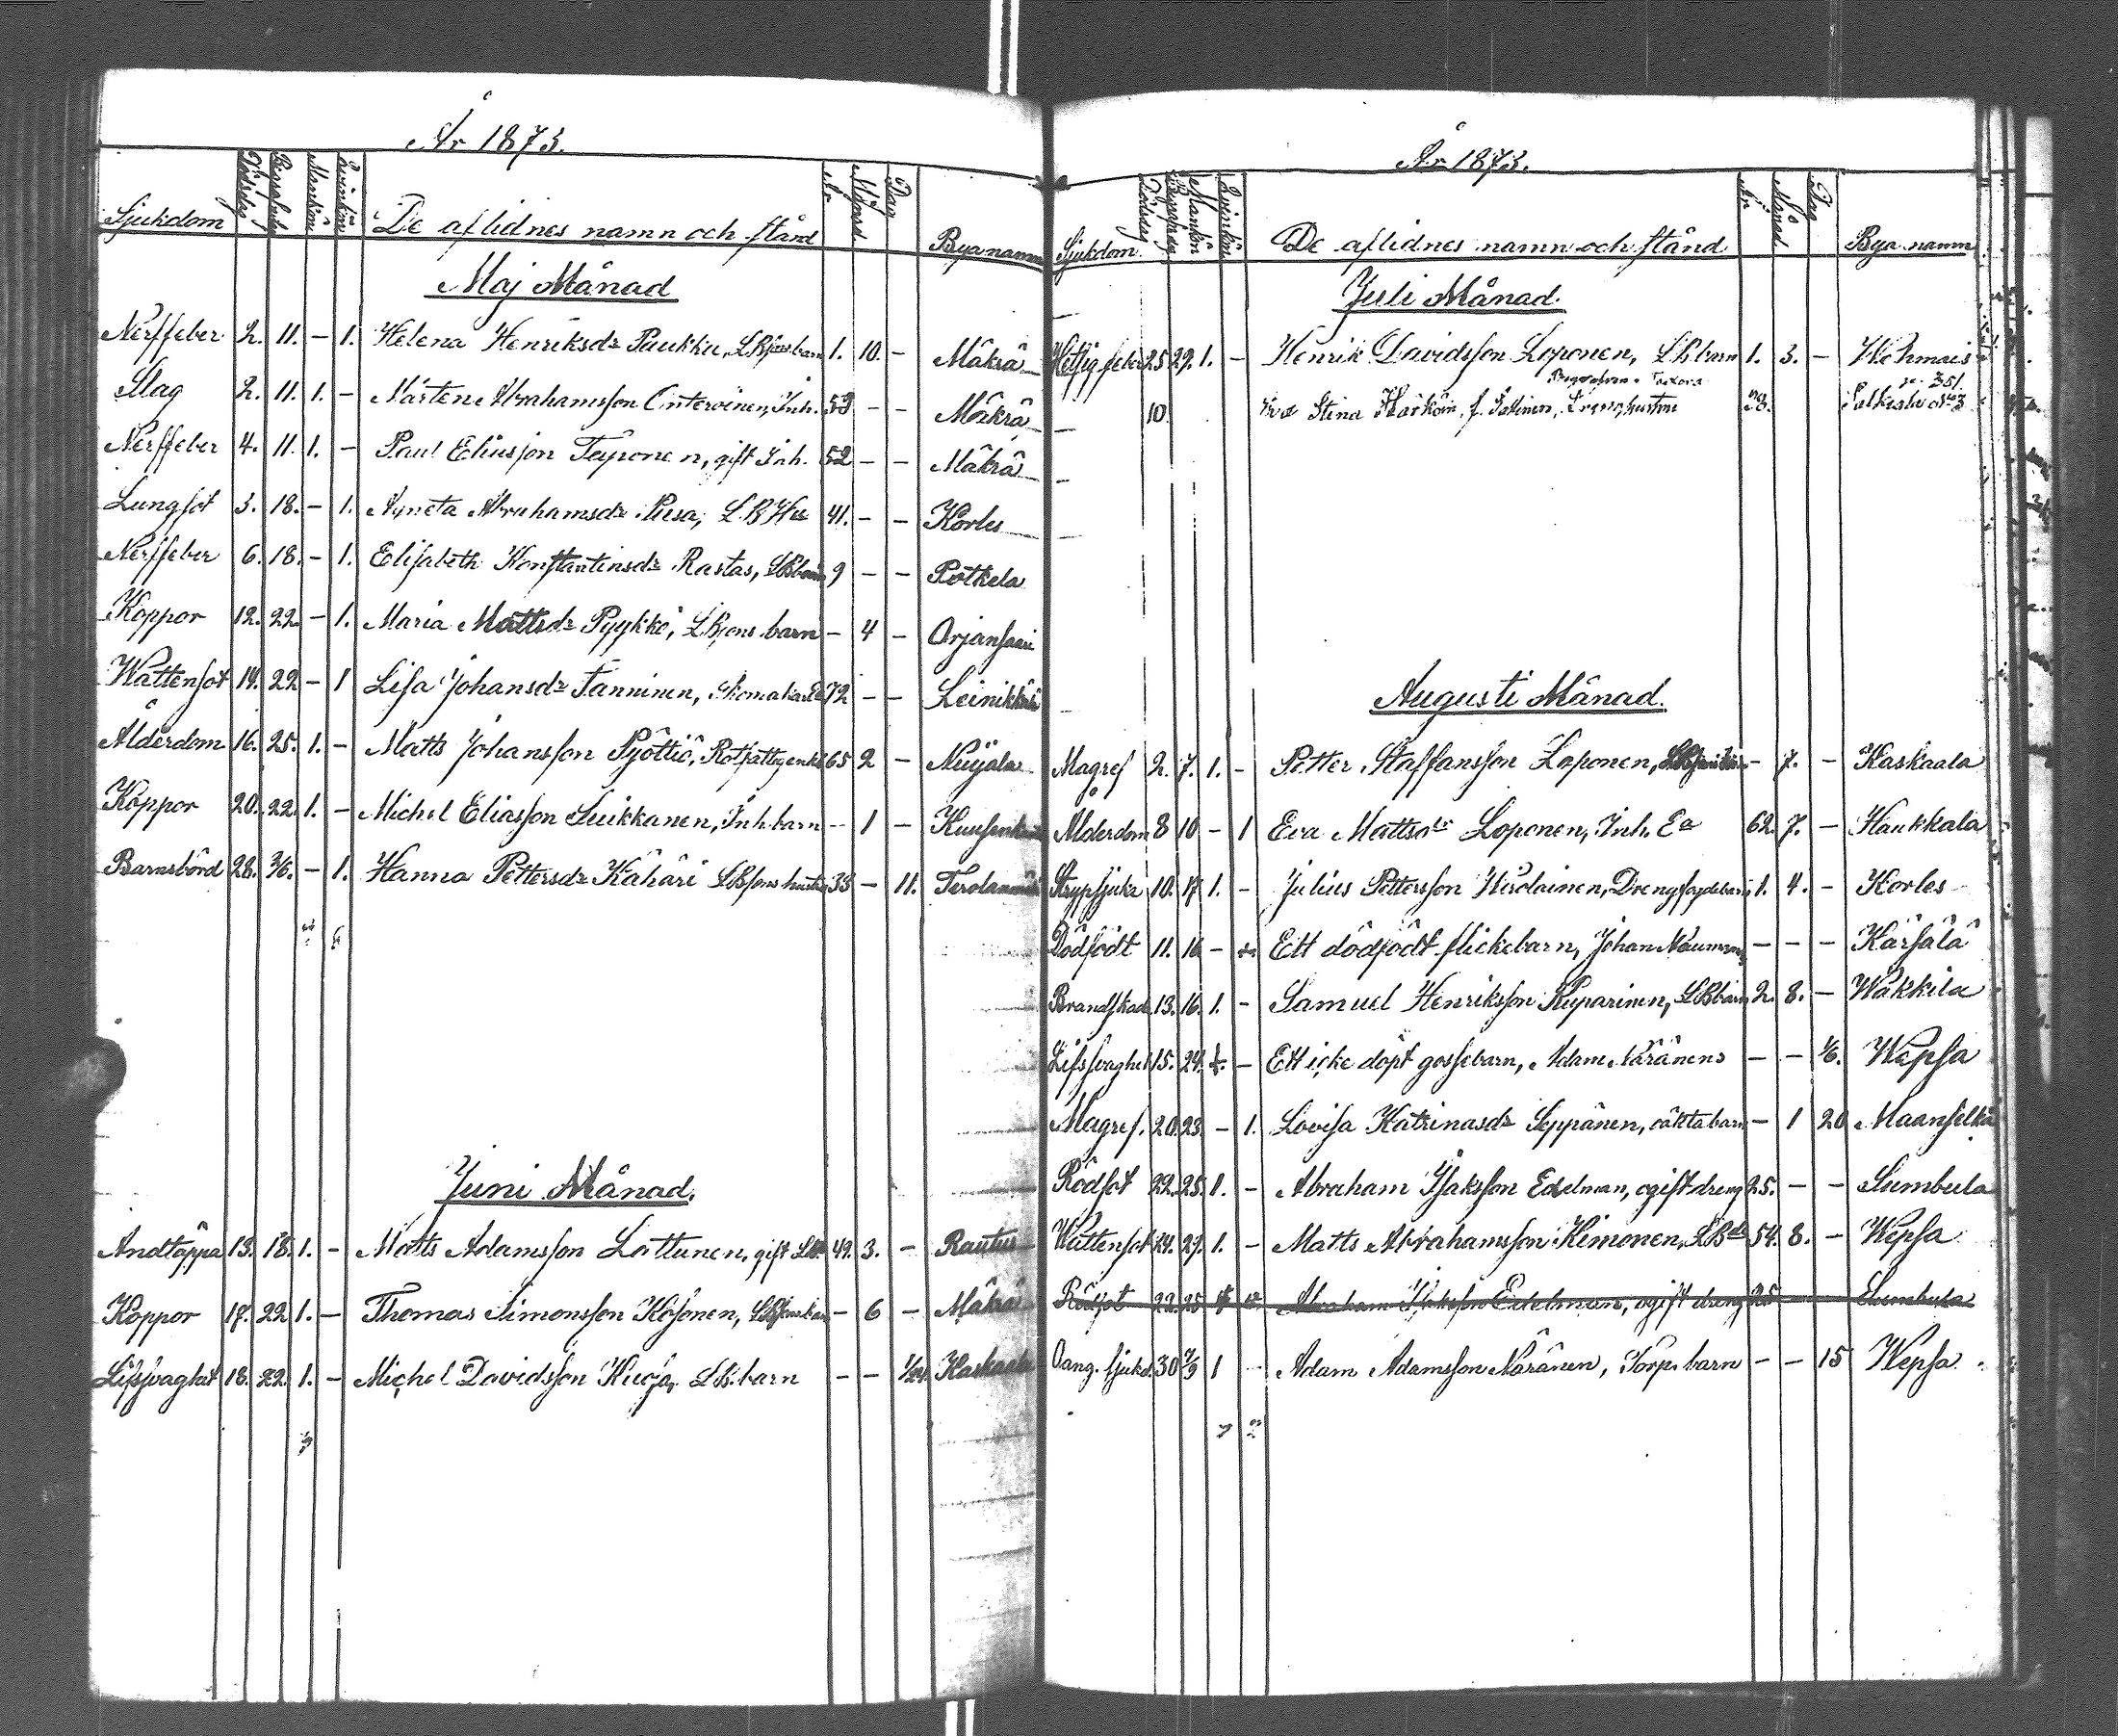 År 1873.
Sjukdom Dödsdag Begrafn. Mankön Qvinkön De aflidnes namn och stånd År Månad Dag Byanamn
Maj Månad
Nerffeber 2. 11. – 1. Helena Henriksdr Paukku, LBsons barn 1. 10. – Mäkrä
Slag 2. 11. 1. – Mårten Abrahamsson Onteroinen, Inh. 53 – – Mäkrä
Nerffeber 4. 11. 1. – Paul Eliasson Teponen, gift Inh. 52 – – Mäkrä
Lungsot 3. 18. – 1. Agneta Abrahamsdr Pusa, LB Hu 41. – – Korles
Nerffeber 6. 18. – 1. Elisabeth Konstantinsdr Rastas, LBbarn 9 – – Potkela
Koppor 12. 22. – 1. Maria Mattsdr Pyykkö, LBsons barn – 4 – Orjansaari
Wattensot 14. 22 – 1 Lisa Johansdr Tanninen, 72 – – Leinikkälä
Ålderdom 16. 25. 1. – Matts Johansson Pjöttiö, Rotfattig enkl 65 2 – Nuijala
Koppor 20. 22. 1. – Michel Eliasson Suikkanen, Inh. barn – 1 –
Barnsbörd 28. 3/6. – 1. Hanna Pettersdr Kähäri LBsons hustru 33 – 11.
Juni Månad.
Andtäppa 13. 18. 1. – Matts Adamsson Lattunen, gift LB 49. 3. – Rautus
Koppor 17. 22 1. – Thomas Simonsson Kosonen, LBsons barn – 6 – Mäkrä
Lifssvaghet 18. 22. 1. – Michel Davidsson Kuoja, LB. barn – – 1/24 Kaskaala
3
År 1873.
Sjukdom. Dödsdag Begrafn.dag Mankön Qvinkön De aflidnes namn och stånd År Månad Dag Bya namn
Juli Månad.
Hetsig feber 25 29. 1. – Henrik Davidsson Loponen, LB. barn 1. 3. – Wehmais
10. Stina Härkön, f. 28.
Augusti Månad.
Magref 2. 7. 1. – Petter Staffansson Loponen, – 7. – Kaskaala
Ålderdom 8 10 – 1 Eva Mattsdr Loponen, Inh. Ea 62. 7. – Haukkala
Strypsjuka 10. 17 1. – Julius Pettersson Hirolainen, Drengs 1. 4. – Korles
Dödfödt 11. 16 – Ett dödfödt flickebarn, Johan – – – Kärsälä
Brandskada 13. 16. 1. – Samuel Henriksson Kuparinen, LBbarn 2. 8. – Wakkila
Lifssvaghet 15. 24. – Ett icke döpt gossebarn, Adam Näränens – – 1/6. Wepsa
Magref. 20. 23. – 1. Lovisa Katrinasdr Seppänen, oäkta barn – 1 20 Maanselkä
Rödsot 22. 25. 1. – Abraham Isaksson Edelman, ogift dreng 25. – – Sumbula
Wattensot 24. 27. 1. – Matts Abrahamsson Kimonen, LBde 54. 8. – Wepsa
Rödsot 22. 25 Abraham Isaksson Edelman, ogift dreng 25 Sumbula
Oang. sjukd. 30 7/9 1 – Adam Adamsson Näränen, Torp. barn – – 15 Wepsa